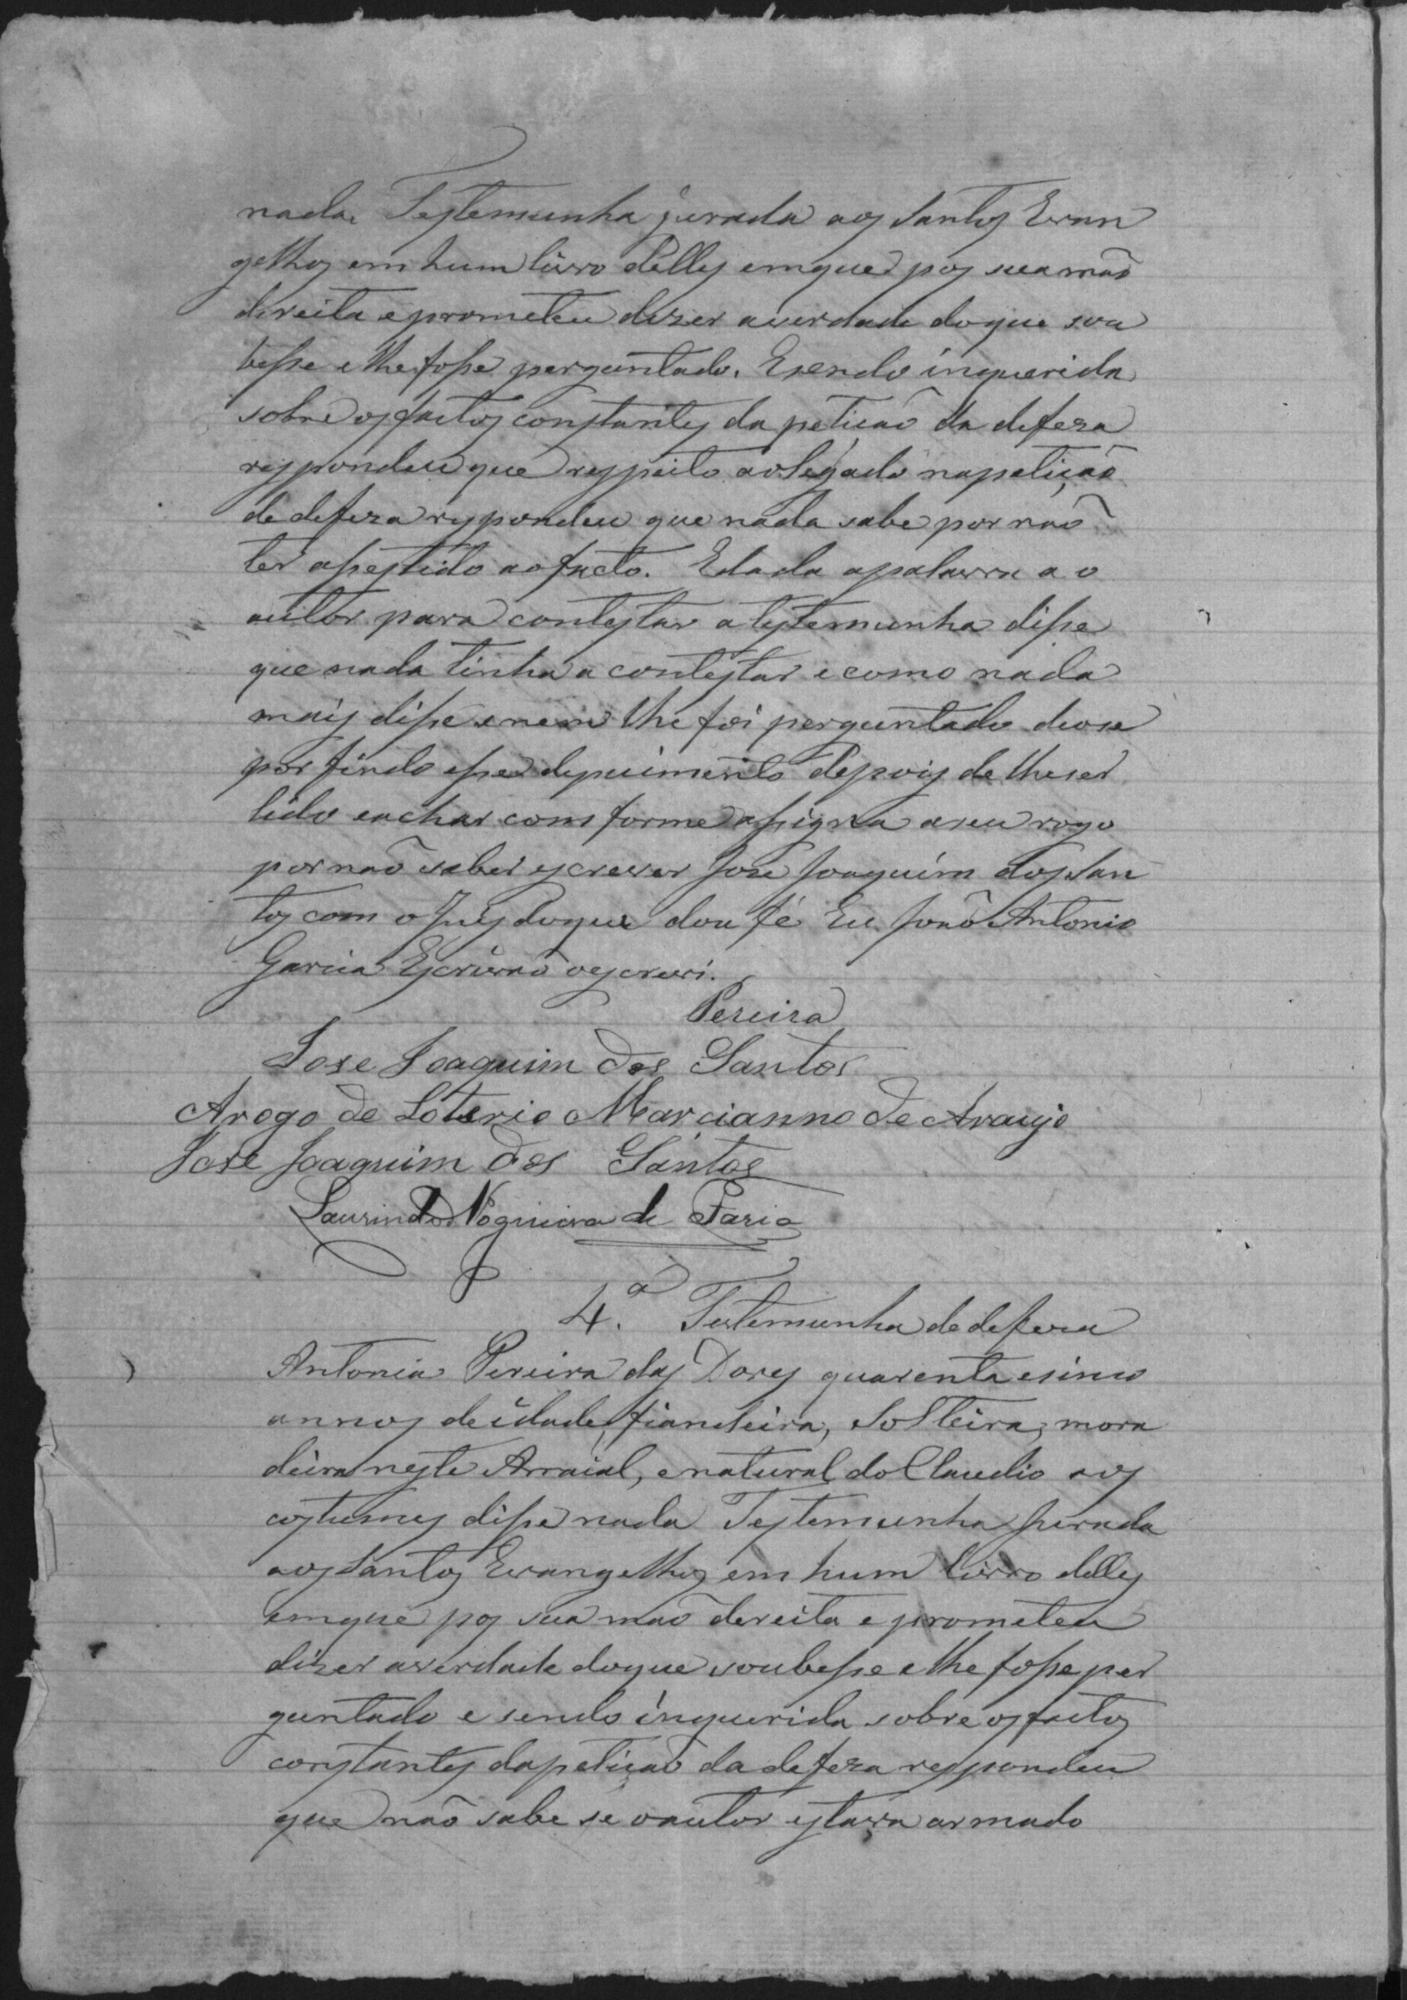 nada. Testemunha jurada aos Santos Evan
gelhos em hum livro delles emque pos sua mão
dereita e prometeu dizer averdade doque sou
besse e lhe fosse perguntado. Esendo inquerida
sobre os factos constantes da petição da defeza
respondeu que respeito aolegado napetição
de defeza respondeu que nada sabe por não
ter assestido ao facto. Edada apalavra a o
autor para contestar a testemunha disse
que nada tinha a contestar e como nada
mais disse enem lhe foi perguntado deose
por findo esse depuimento depois de lheser
lido eachar comforme assigna aseu rogo
por não saber escrever Jose Joaquim dos San
tos com o Juis doque dou fé Eu João Antonio
Garcia Escrivão oescrevi.
Pereira
Jose Joaquim dos Santos
Arogo de Loterio Marcianno de Araujo
Jose Joaquim dos Santos
Laurindo Nogueira de Faria
4.a Testemunha de defeza
Antonia Pereira das Dores quarenta esinco
annos de idade, fiandeira, Solteira, mora
deira neste Arraial, enatural do Claudio aos
costumes disse nada Testemunha Jurada
aos Santos Evangelhos em hum livro delles
emque pos sua mão dereita e prometeu
dizer averdade doque soubesse e lhe fosse per
guntado e sendo inquerida sobre os factos
constantes dapetição da defeza respondeu
que não sabe se oautor estava armado